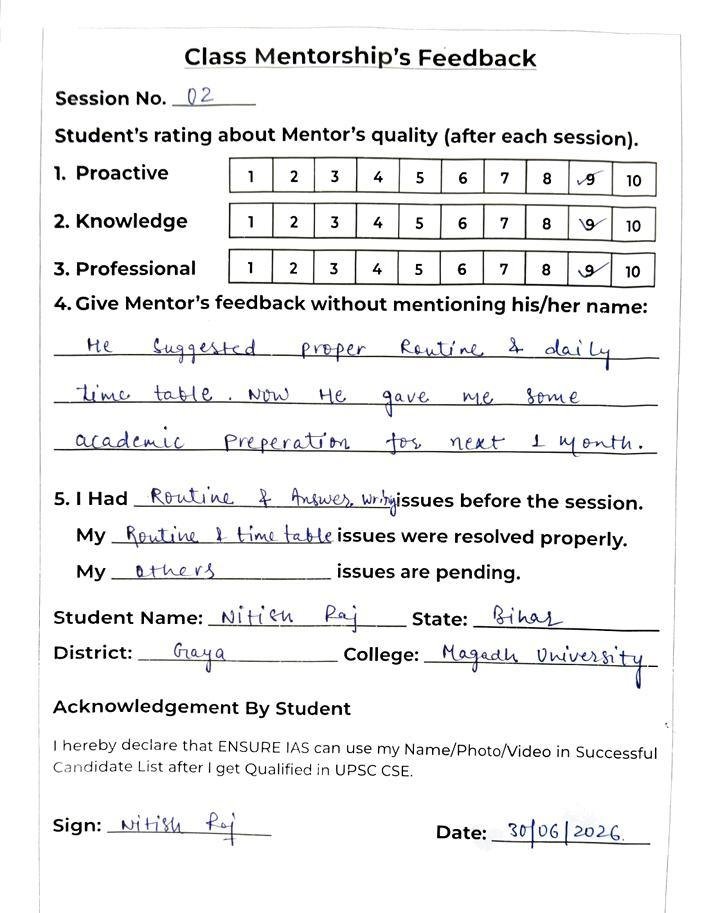 Class Mentorship's Feedback
Session No. 02
Student's rating about Mentor's quality (after each session).
1. Proactive 1 2 3 4 5 6 7 8 9 10
2. Knowledge 1 2 3 4 5 6 7 8 9 10
3. Professional 1 2 3 4 5 6 7 8 9 10
4. Give Mentor's feedback without mentioning his/her name:
He suggested proper Routine & daily
time table. Now He gave me some
academic preperation for next 1 month.
5. I Had Routine & Answer writing issues before the session.
My Routine & time table issues were resolved properly.
My others issues are pending.
Student Name: Nitish Raj State: Bihar
District: Gaya College: Magadh University
Acknowledgement By Student
I hereby declare that ENSURE IAS can use my Name/Photo/Video in Successful
Candidate List after I get Qualified in UPSC CSE.
Sign: Nitish Raj Date: 30/06/2026.